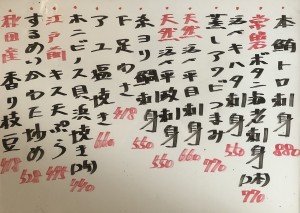 本鮪トロ刺身 880
常磐 ボタン海老刺身(2本) 770
生しらすつまみ 770
活〆イキハタ刺身 550
天然 活〆平貝刺身 660
天然 活〆平政刺身 550
糸ヨリ鯛刺身 550
下足わさ 418
アユ塩焼き 660
ホンビノス貝浜焼き(2ケ) 440
江戸前 キス天ぷら 495
するめいかわた炒め 528
秋田産 香り枝豆 418